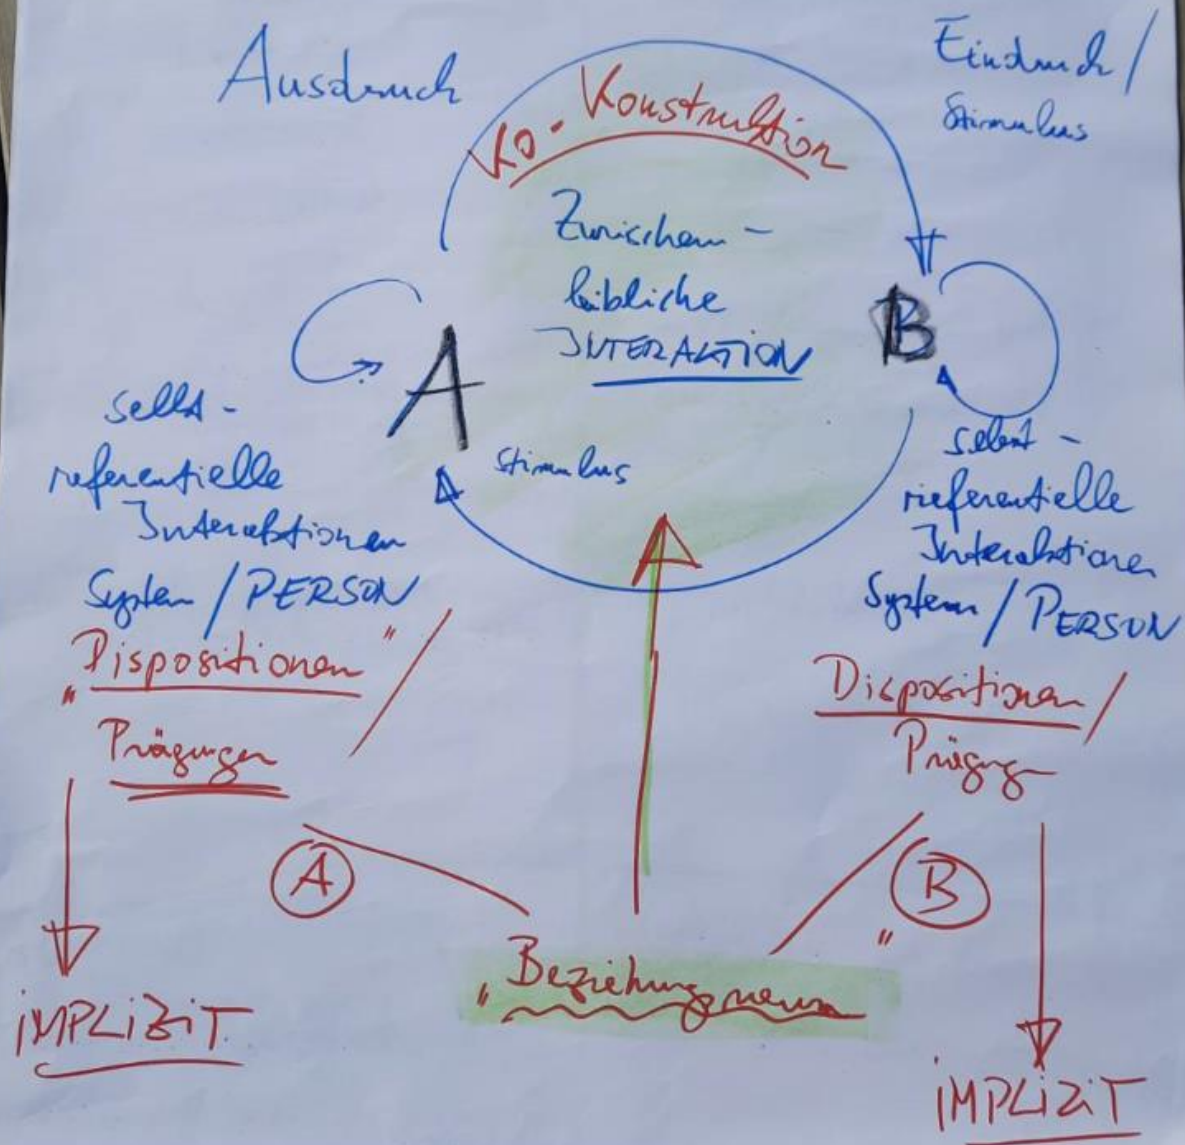 Ausdruck
Eindruck /
Stimulus
Ko-Konstruktion
Zwischen-
leibliche
INTERAKTION
A
B
Stimulus
selbst-
referentielle
Interaktionen
System / PERSON
"Dispositionen" /
Prägungen
selbst-
referentielle
Interaktionen
System / PERSON
Dispositionen /
Prägung
A
B
"
"Beziehung
iMPLiZiT
iMPLiZiT